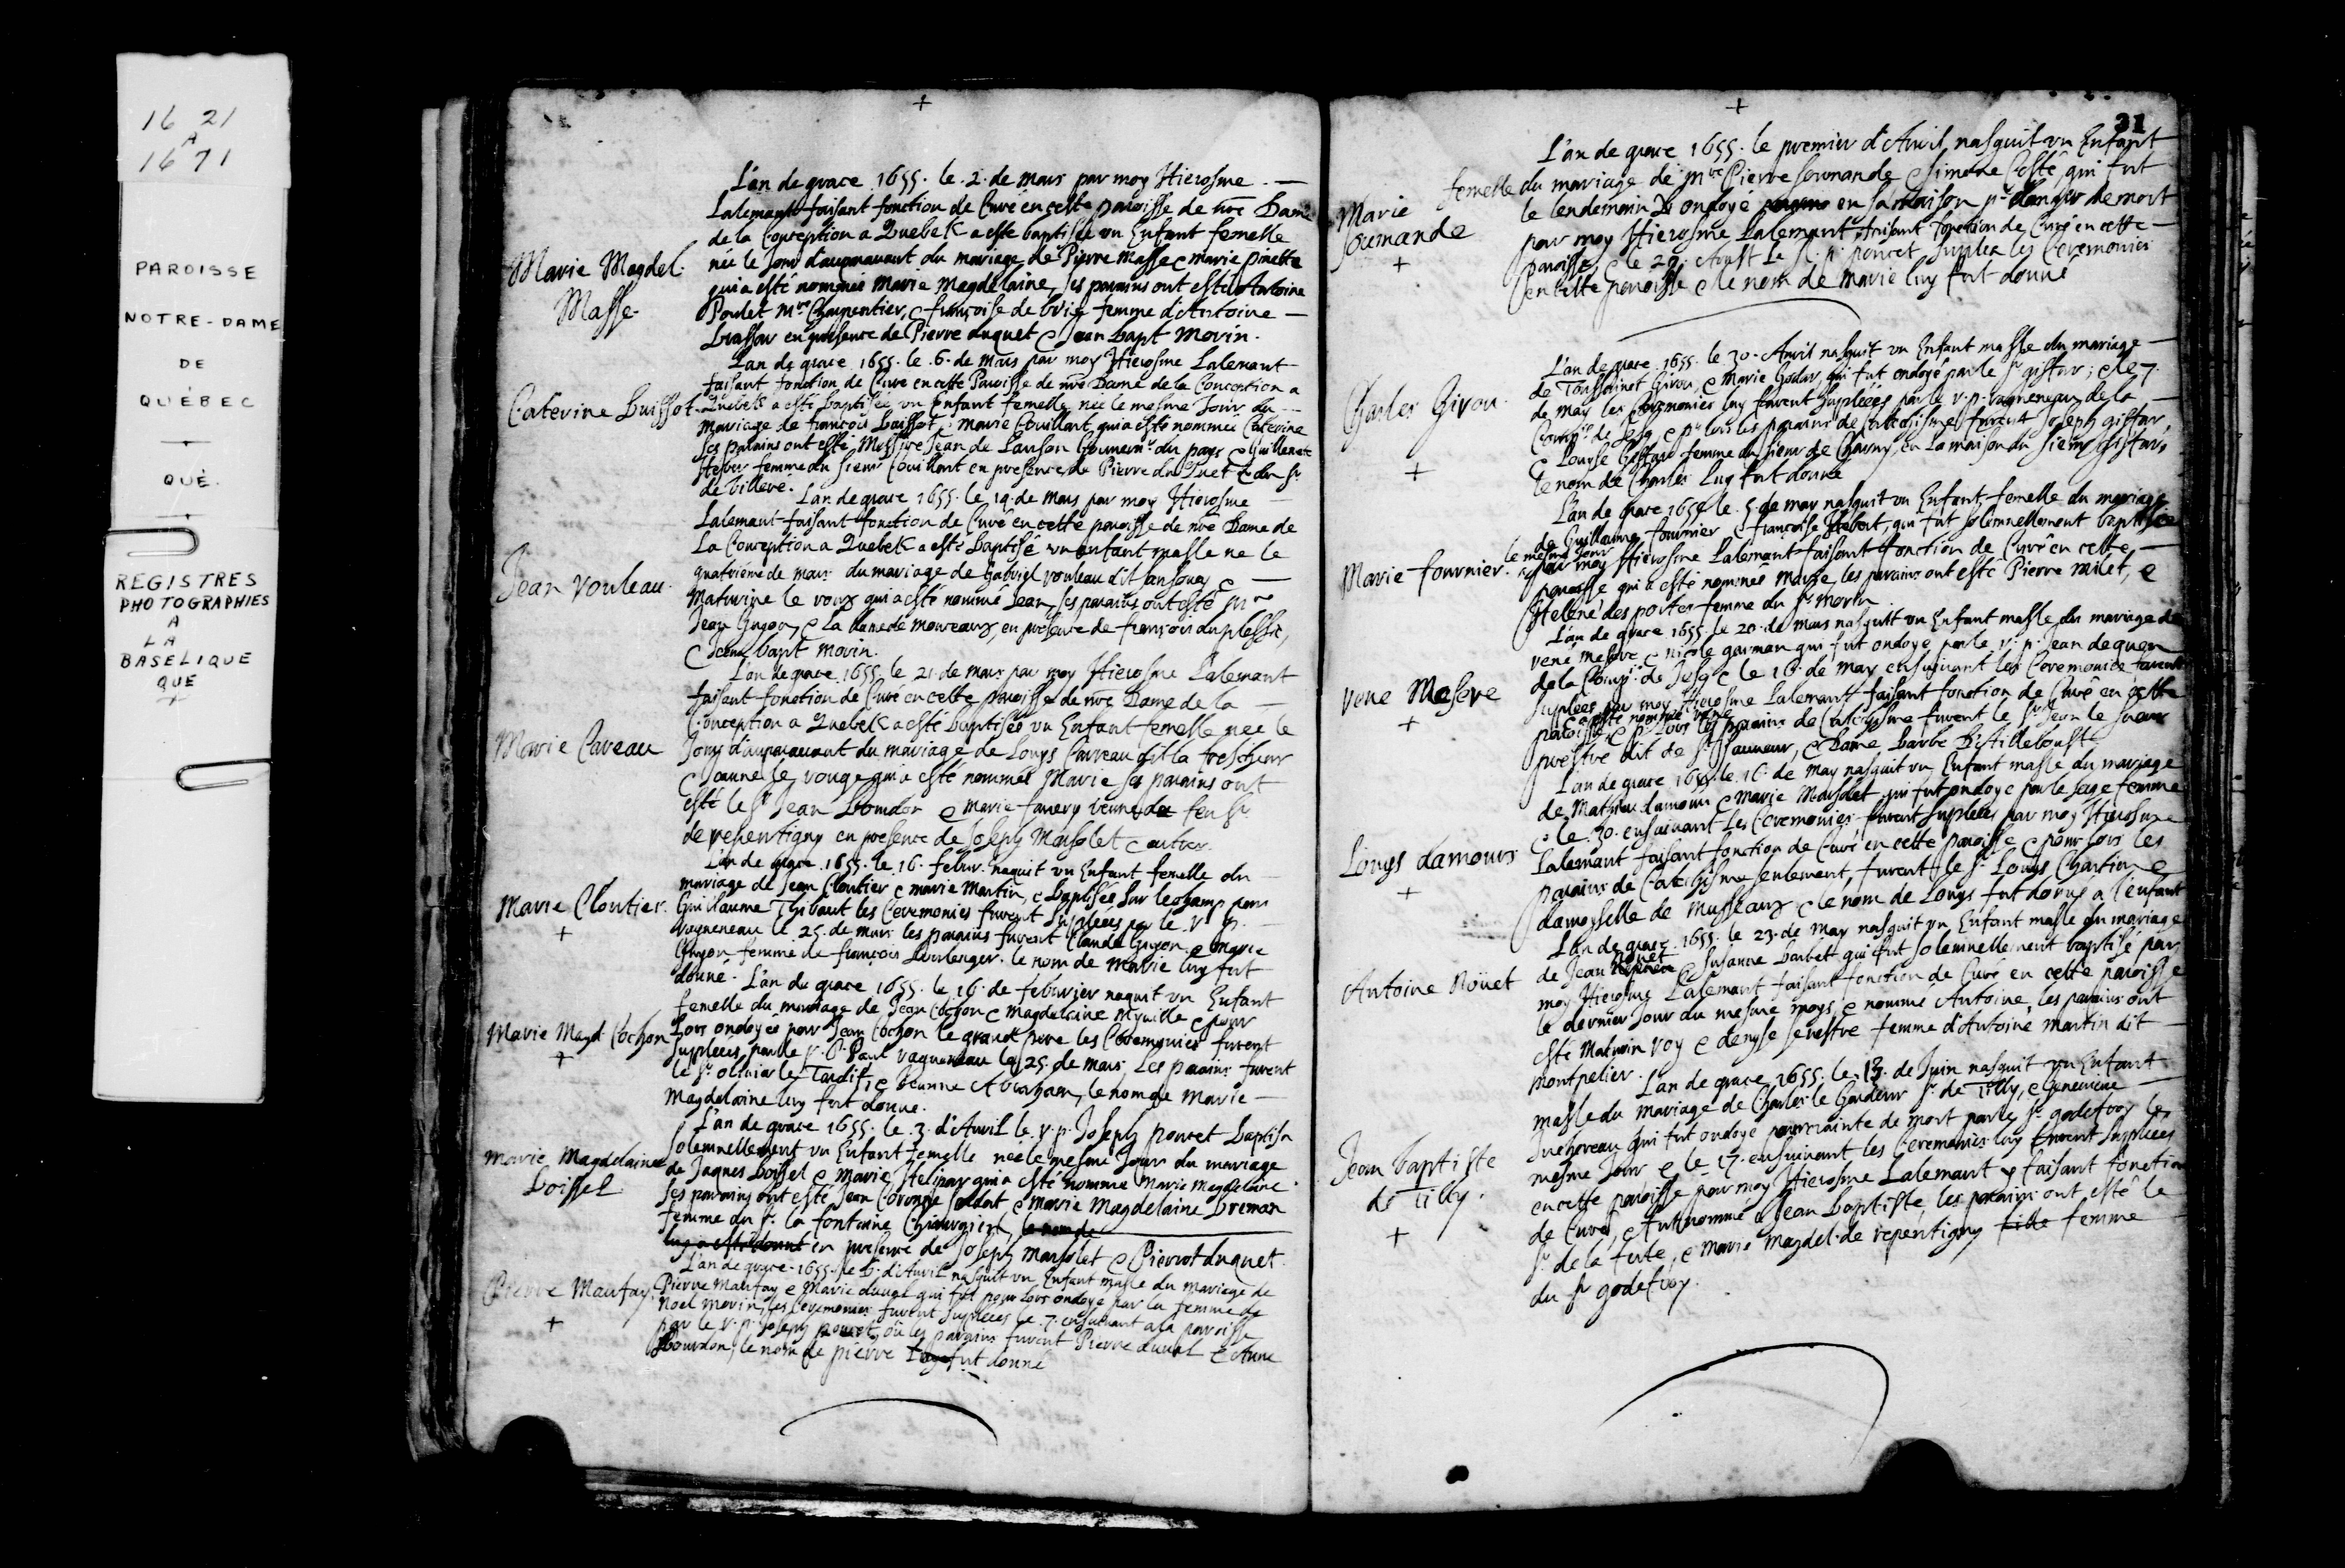 16 21
A
16 71
PAROISSE
NOTRE-DAME
DE
QUÉBEC
QUÉ.
REGISTRES
PHOTOGRAPHIES
A
LA
BASELIQUE
QUE
+
+
L'an de grace 1655. le .2. de mars par moy Hierosme
Lalemant faisant fonction de Curé en cette paroisse de nre Dame
de la Conception a Quebek a esté baptisée un Enfant femelle
Marie Magdel.
née le Jour d'auparavant du mariage de Pierre Masse e marie pinelle
qui a esté nommée Marie Magdelaine, ses parains ont esté Antoine
Masse
Poulet Mre Charpentier, e françoise de brie femme d'Antoine
brassar en presence de Pierre duquet e Jean bapt Morin.
L'an de grace 1655. le .6. de mars par moy Hierosme Lalemant
faisant fonction de Curé en cette Paroisse de nre Dame de la Conception a
Caterine Buissot
Quebek a esté baptisée un Enfant femelle née le mesme Jour du
mariage de francois buissot, e Marie Couillart qui a esté nommée Caterine
ses parains ont esté Messire Jean de Lauson Gouvernr. du pays e Guillemete
Hebur femme du sieur Couillart en presence de Pierre du Quet e du Sr.
de Villere.
L'an de grace 1655. le 14. de mars par moy Hierosme
Lalemant faisant fonction de Curé en cette paroisse de nre Dame de
La Conception a Quebek a esté baptisé un enfant masle ne le
Jean Vouleau.
quatriéme de mars du mariage de Gabriel vouleau dit sansoucy e
Maturine le roux qui a esté nommé Jean, ses parains ont esté Mre
Jean Guyon, e la dame de monceaux en presence de françois duplessis,
e Jean bapt morin.
L'an de grace 1655. le 21. de mars par moy Hierosme Lalemant
faisant fonction de Curé en cette paroisse de nre Dame de la
Conception a Quebek a esté baptisée un Enfant femelle nee le
Marie Caveau
Jour d'auparavant du mariage de Louys Carreau dit la frescheur
e Jeanne le rouge qui a esté nommée Marie ses parains ont
esté le Sr. Jean bourdon e marie favery veuve de feu Sr
de repentigny en presence de Joseph Marsolet e autres.
L'an de grace 1655. le 16. febur. naquit un Enfant femelle du
mariage de Jean Cloutier e marie Martin, e baptisée sur le champ par
Marie Cloutier.
Guillaume Thibaut les Ceremonies furent suppléées par le V. p.
+
ragueneau le 25. de mars les parains furent Claude Guyon e Marie
Guyon femme de françois boulenger. le nom de Marie luy fut
donné.
L'an de grace 1655. le 16. de feburier naquit un Enfant
femelle du mariage de Jean Cochon e Magdelaine Myville e pour
Marie Magd. Cochon
lors ondoyée par Jean Cochon le grand pere les Ceremonies furent
+
suppléées par le V. P. Paul ragueneau le 25. de mars, Les parains furent
le Sr. olivier le Tardif, e Jeanne Abraham, le nom de Marie
Magdelaine luy fut donné.
L'an de grace 1655. le .3. d'Avril le r. p. Joseph poncet baptisa
solemnellement un Enfant femelle née le mesme Jour du mariage
Marie Magdelaine
de Jaques boissel e Marie Helipar qui a esté nommé Marie Magdelaine
Boissel
ses parains ont esté Jean Coronne soldat e Marie Magdelaine breman
femme du Sr. la fontaine Chirurgien, le nom de
luy a esté donné en presence de Joseph marsolet e Pierrot duquet.
L'an de grace 1655. le 6. d'Avril nasquit un Enfant masle du mariage de
Pierre Maufay.
Pierre Maufay e Marie duval qui fut pour lors ondoyé par la femme de
Noel morin, les ceremonies furent suppléées le .7. ensuivant a la paroisse
+
par le r. p. Joseph poncet, où les parains furent Pierre duval e Anne
Bourdon, le nom de pierre luy fut donné
+
31
L'an de grace 1655. le premier d'Avril nasquit un Enfant
femelle du mariage de Mre Pierre soumande e simone Costé, qui fut
Marie
le lendemain ondoyé en sa maison pr. danger de mort
soumande
par moy Hierosme Lalemant faisant fonction de Curé en cette
+
paroisse, e le 29. Aoust Le R. p. poncet suplea les Ceremonies
en cette paroisse e le nom de Marie luy fut donné
L'an de grace 1655. le 30. Avril nasquit un Enfant masle du mariage
de Toussainct Girou, e Marie Godar, qui fut ondoyé par le Sr. giffar; e le 7.
Charles Girou.
de may les Ceremonies luy furent supleées par le r. p. ragueneau de la
Compie. de Jesg e pr. lors les parains de catechisme furent Joseph giffar,
+
e Louyse Giffar femme du sieur de Charny en La maison du sieur giffar,
le nom de Charles luy fut donné
L'an de grace 1655. le .5. de may nasquit un Enfant femelle du mariage
de Guillaume fournier e françoise Hebert, qui fut solemnellement baptisée
le mesme Jour
Marie fournier.
par moy Hierosme Lalemant faisant fonction de Curé en cette
paroisse qui a esté nommée Marie, les parains ont esté Pierre milet, e
Helene des portes femme du Sr. Morin.
L'an de grace 1655. le 20. de mars nasquit un Enfant masle du mariage de
rené Meseve e nicole garman qui fut ondoyé par le r. p. Jean dequen
de la Comp. de Jesg e le 16. de may ensuivant les Ceremonies furent
rene Meseve
suplees par moy Hierosme Lalemant faisant fonction de Curé en cette
e a esté nommé rene
+
paroisse, e pr. lors les parains de Catechisme furent le Sr. Jean le sueur
prestre dit de St. sauveur, e Dame barbe D'Ailleboust
L'an de grace 1655. le 16. de may nasquit un Enfant masle du mariage
de Mathieu damours e Marie Marsolet qui fut ondoyé par la sage femme
e le .30. ensuivant les Ceremonies furent suplees par moy Hierosme
Louys damours
Lalemant faisant fonction de Curé en cette paroisse e pour lors les
+
parains de Catechisme seulement, furent le Sr. Louys Chartier e
damoyselle de Musseaux, e le nom de Louys fut donné a l'enfant
L'an de grace 1655. le 23. de may nasquit un Enfant masle du mariage
nouet
Antoine Nöuet
de Jean e Susanne barbet qui fut solemnellement baptisé par
moy Hierosme Lalemant faisant fonction de Curé en cette paroisse
le dernier Jour du mesme moys, e nommé Antoine, les parains ont
esté Maturin roy e denyse sevestre femme d'Antoine martin dit
montpelier.
L'an de grace 1655. le .13. de Juin nasquit un Enfant
masle du mariage de Charles le Gardeur Sr. de Tilly, e Genevieve
Juchereau qui fut ondoyé pour crainte de mort par le Sr. godefroy le
Jean baptiste
mesme Jour e le 17. ensuivant les Ceremonies luy furent suplees
de Tilly.
en cette paroisse par moy Hierosme Lalemant faisant fonction
+
de Curé, e fut nommé Jean baptiste, les parains ont esté le
Sr. de la ferté, e marie Magdel. de repentigny fille femme
du Sr godefroy.